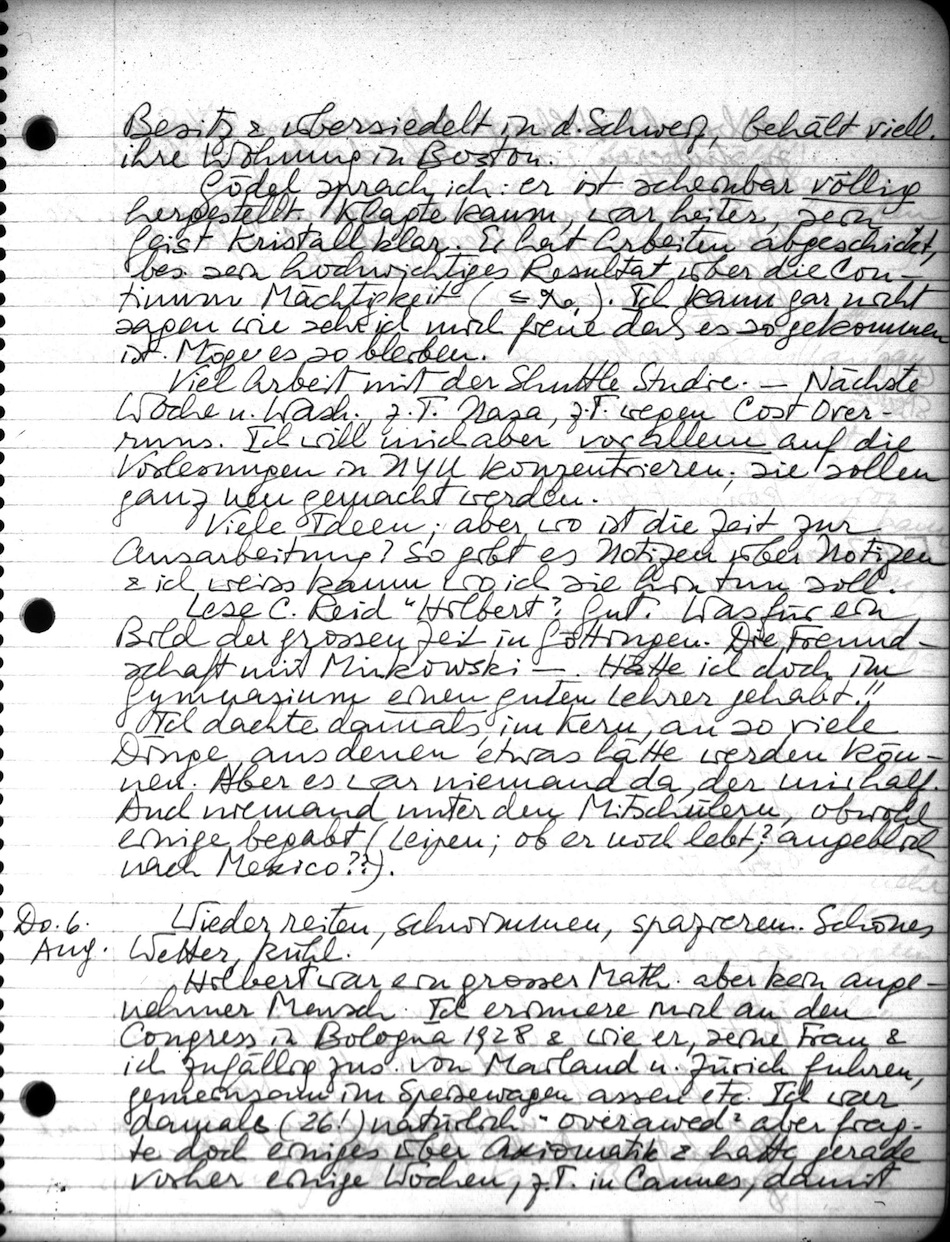 Besitz & übersiedelt in d. Schweiz, behält viell.
ihre Wohnung in Boston.
Gödel sprach ich: er ist scheinbar völlig
hergestellt. Klagte kaum, war heiter, sein
Geist kristallklar. Er hat Arbeiten abgeschickt,
bes. sein hochwichtiges Resultat über die Con-
tinuum Mächtigkeit ( ≤ ℵ ). Ich kann gar nicht
sagen wie sehr ich mich freue das es so gekommen
ist. Möge es so bleiben.
Viel Arbeit mit der Shuttle Studie. — Nächste
Woche n. Wash., z.T. Nasa, z.T. wegen Cost Over-
runs. Ich will mich aber vor allem auf die
Vorlesungen in NYU konzentrieren; sie sollen
ganz neu gemacht werden.
Viele Ideen; aber wo ist die Zeit zur
Ausarbeitung? So gibt es Notizen über Notizen
& ich weiss kaum wo ich sie hin tun soll.
Lese C. Reid "Hilbert". Gut. Was für ein
Bild der grossen Zeit in Göttingen. Die Freund-
schaft mit Minkowski —. Hätte ich doch im
Gymnasium einen guten Lehrer gehabt!!
Ich dachte damals, im Kern, an so viele
Dinge aus denen etwas hätte werden kön-
nen. Aber es war niemand da, der mir half.
Auch niemand unter den Mitschülern, obwohl
einige begabt (Leipen; ob er noch lebt? angeblich
nach Mexico??).
Do. 6. Wieder reiten, schwimmen, spazieren. Schönes
Aug. Wetter, kühl.
Hilbert war ein grosser Math. aber kein ange-
nehmer Mensch. Ich erinnere mich an den
Congress in Bologna 1928 & wie er, seine Frau &
ich zufällig zus. von Mailand n. Zürich fuhren,
gemeinsam im Speisewagen assen etc. Ich war
damals (26!) natürlich "overawed" aber frag-
te doch einiges über Axiomatik & hatte gerade
vorher einige Wochen, z.T. in Cannes, damit